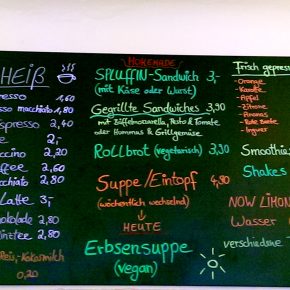 HEIß
espresso 1,60
esso macchiato 1,80
espresso 2,40
ee 2,-
ccino 2,20
ffee 2,60
cchiato 2,80
Latte 3,-
okolade 2,80
inztee 2,80
Reis,-Kokosmilch
0,20
HOMEMADE
SPLUFFIN-Sandwich 3,-
(mit Käse oder Wurst)
Gegrillte Sandwiches 3,90
mit Büffelmozzarella, Pesto & Tomate
oder Hummus & Grillgemüse
Rollbrot (vegetarisch) 3,30
Suppe/Eintopf 4,80
(wöchentlich wechselnd)
↓
HEUTE
Erbsensuppe
(vegan)
Frisch gepress
-Orange
-Karotte
-Apfel
-Zitrone
-Ananas
-Rote Beete
-Ingwer
Smoothies
Shakes
NOW LIMON
Wasser
verschiedene